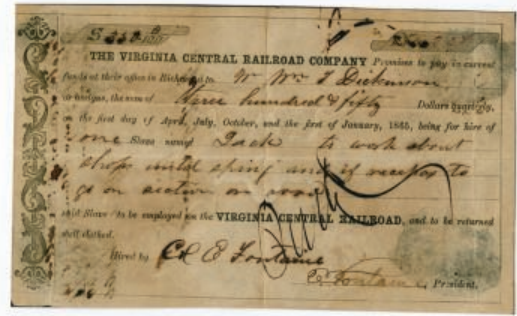 $ 350.00
THE VIRGINIA CENTRAL RAILROAD COMPANY Promises to pay in current
funds at their office in Richmond to Wm T Dickinson
or assigns, the sum of three hundred & fifty Dollars quarterly,
on the first day of April, July, October, and the first of January, 1865, being for hire of
one Slave named Jack to work about
shops until spring and if necessary to
go on section on road
said Slave to be employed on the VIRGINIA CENTRAL RAILROAD, and to be returned
well clothed.
Hired by Col E Fontaine
E. Fontaine, President.